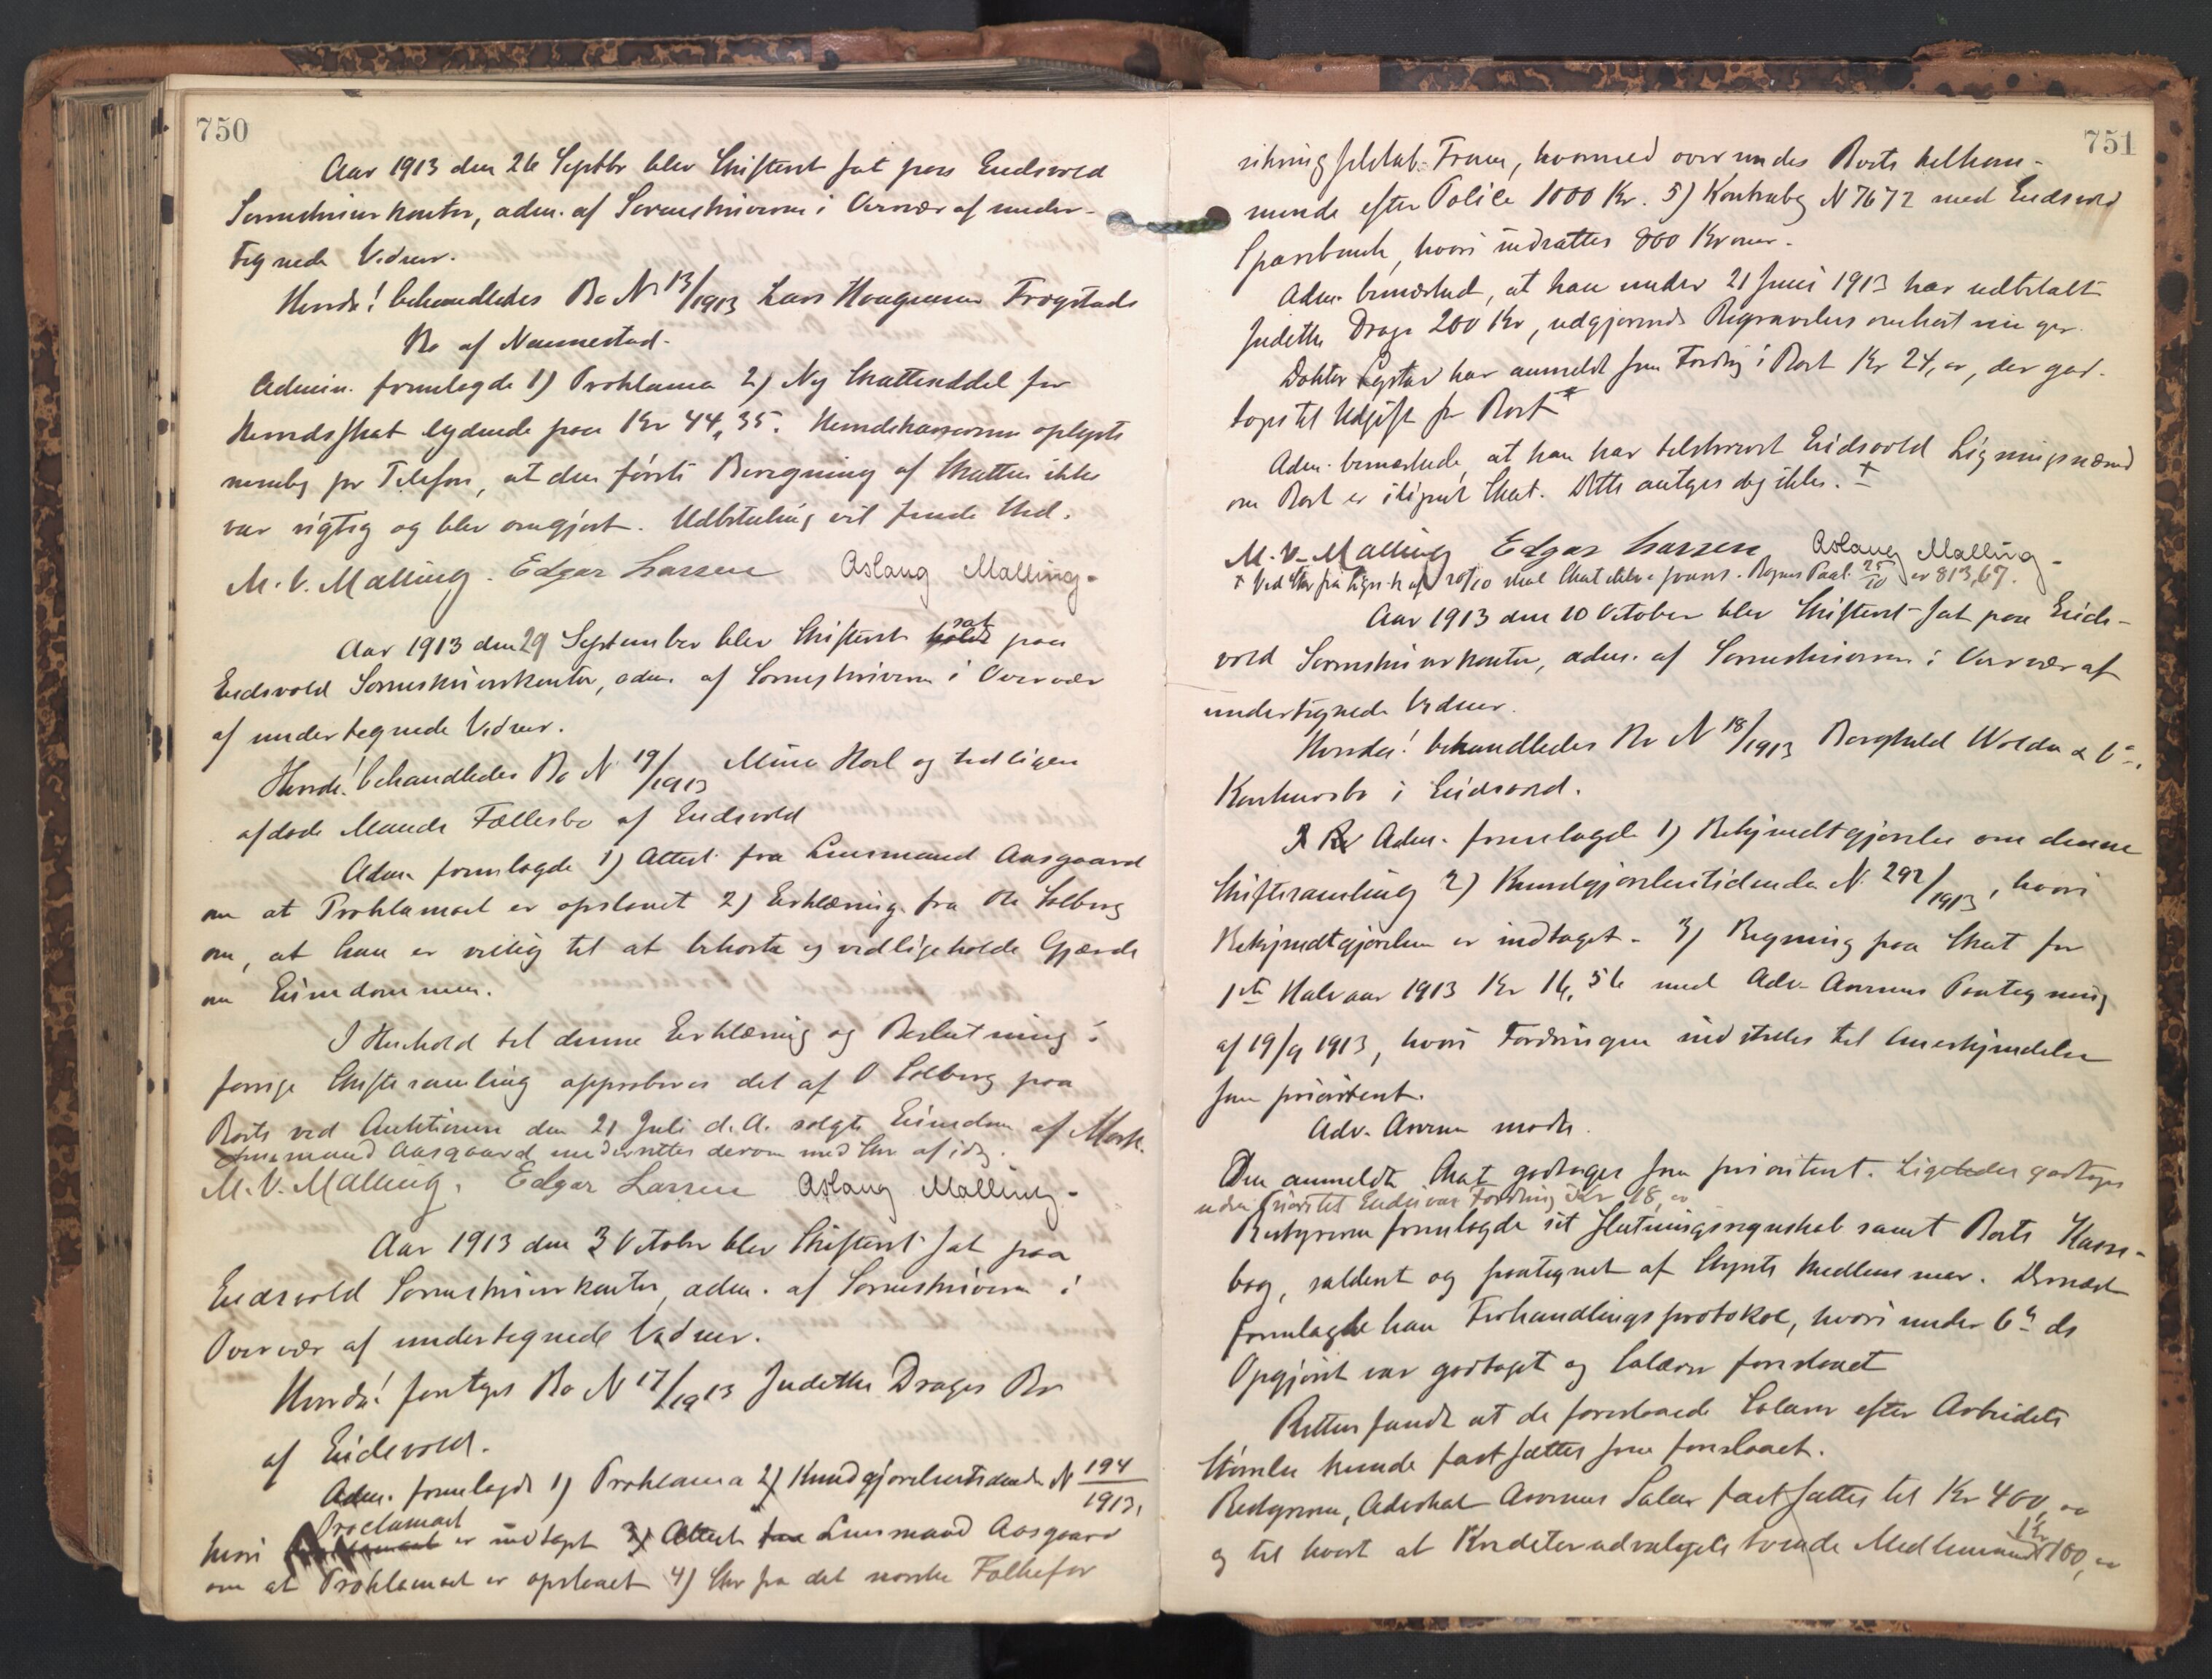 750
Aar 1913 den 26 Septbr blev Skifteret sat paa Eidsvold
Sorenskriverkontor, adm. af Sorenskriveren i Overvær af under-
tegnede Vidner.
Herved! behandledes Bo N 13/1913 Lars Haagensen Frogstads
Bo af Nannestad.
Admin. fremlagde 1) Proklama 2) Ny Skatteseddel for
Herredsskat lydende paa Kr 44,35. Herredskassereren oplyste
nemlig pr Telefon, at den første Beregning af Skatten ikke
var rigtig og blev omgjort. Udbetaling vil finde Sted.
M. V. Malling. Edgar Larsen Aslaug Malling.
Aar 1913 den 29 September blev Skifteret holdt sat paa
Eidsvold Sorenskriverkontor, adm. af Sorenskriveren i Overvær
af undertegnede Vidner.
Herved! behandledes Bo N 19/1913 Mina Hoel og tidligere
afdøde Mands Fællesbo af Eidsvold
Adm. fremlagde 1) Attest fra Lensmand Aasgaard
om at Proklamaet er opslaaet 2) Erklæring fra Ole Solberg
om, at han er villig til at bekoste og vedligeholde Gjærde
om Eiendommen.
I Henhold til denne Erklæring og Beslutning i
forrige Skiftesamling approberes det af O Solberg paa
Boets ved Auktionen den 21 Juli d. A. solgte Eiendom af Mork.
Lensmand Aasgaard underrettes derom med Skr af idag.
M. V. Malling. Edgar Larsen Aslaug Malling.
Aar 1913 den 3 October blev Skifteret sat paa
Eidsvold Sorenskriverkontor, adm. af Sorenskriveren i
Overvær af undertegnede Vidner.
Herved! foretoges Bo N 17/1913 Judithe Drages Bo
af Eidsvold.
Adm. fremlagde 1) Proklama 2) Kundgjørelsestidende N 194/1913,
hvori Proclamaet er indtaget 3) Attest fra Lensmand Aasgaard
om at Proklamaet er opslaaet 4) Skr fra det norske Folkefor
751
sikringsselskab Fram, hvormed oversendes Boets tilkom-
mende efter Police 1000 Kr. 5) Kontrabog N 7672 med Eidsvold
Sparebank, hvori indsattes 800 Kroner.
Adm. bemærked, at han under 21 Juni 1913 har udbetalt
Judithe Drage 200 Kr, udgjørende Begravelsesomkostninger.
Doktor har anmeldt sin Fordring i Boet Kr 24, oo, der god-
toges til Udgift for Boet
Adm. bemærkede, at han har tilskrevet Eidsvold Ligningsnævnd
om Boet er ilignet Skat. Dette antages dog ikke. +
M. V. Malling Edgar Larsen, Aslaug Malling.
+ Ved Skr fra Lign. af 20/10 skal Skat ikke svares. 25/10 er 813,67.
Aar 1913 den 10 October blev Skifteret sat paa Eids-
vold Sorenskriverkontor, adm. af Sorenskriveren i Overvær af
undertegnede Vidner.
Herved! behandledes Bo N 18/1913 Borghild Wolden & Co.
Konkursbo i Eidsvold.
Adm. fremlagde 1) Bekjendtgjørelse om denne
Skiftesamling 2) Kundgjørelsestidende N. 292/1913, hvori
Bekjendtgjørelsen er indtaget. 3) Regning paa Skat for
1ste Halvaar 1913 Kr 16,56 med Adv. Paategning
af 19/9 1913, hvori Fordringen indstilles til Anerkjendelse
som prioritert.
Adv. mødte.
Den anmeldte Skat godtages som prioritert. Ligeledes godtages
uden Prioritet Fordring Kr 18, oo
Bestyreren fremlagde sit Slutningsregnskab samt Boets Kasse-
bog, salderet og paategnet af Styrets Medlemmer. Dernæst
fremlagde han Forhandlingsprotokol, hvori under 6te ds
Opgjøret var godtaget og Salærer foreslaaet
Retten fandt at de foreslaaede Salærer efter Arbeidets
Størrelse kunde fastsættes som foreslaaet.
Bestyreren, Advokat Salær fastsættes til Kr 400, oo
og til hvert af Kreditorudvalgets tvende Medlemmer Kr 100, oo